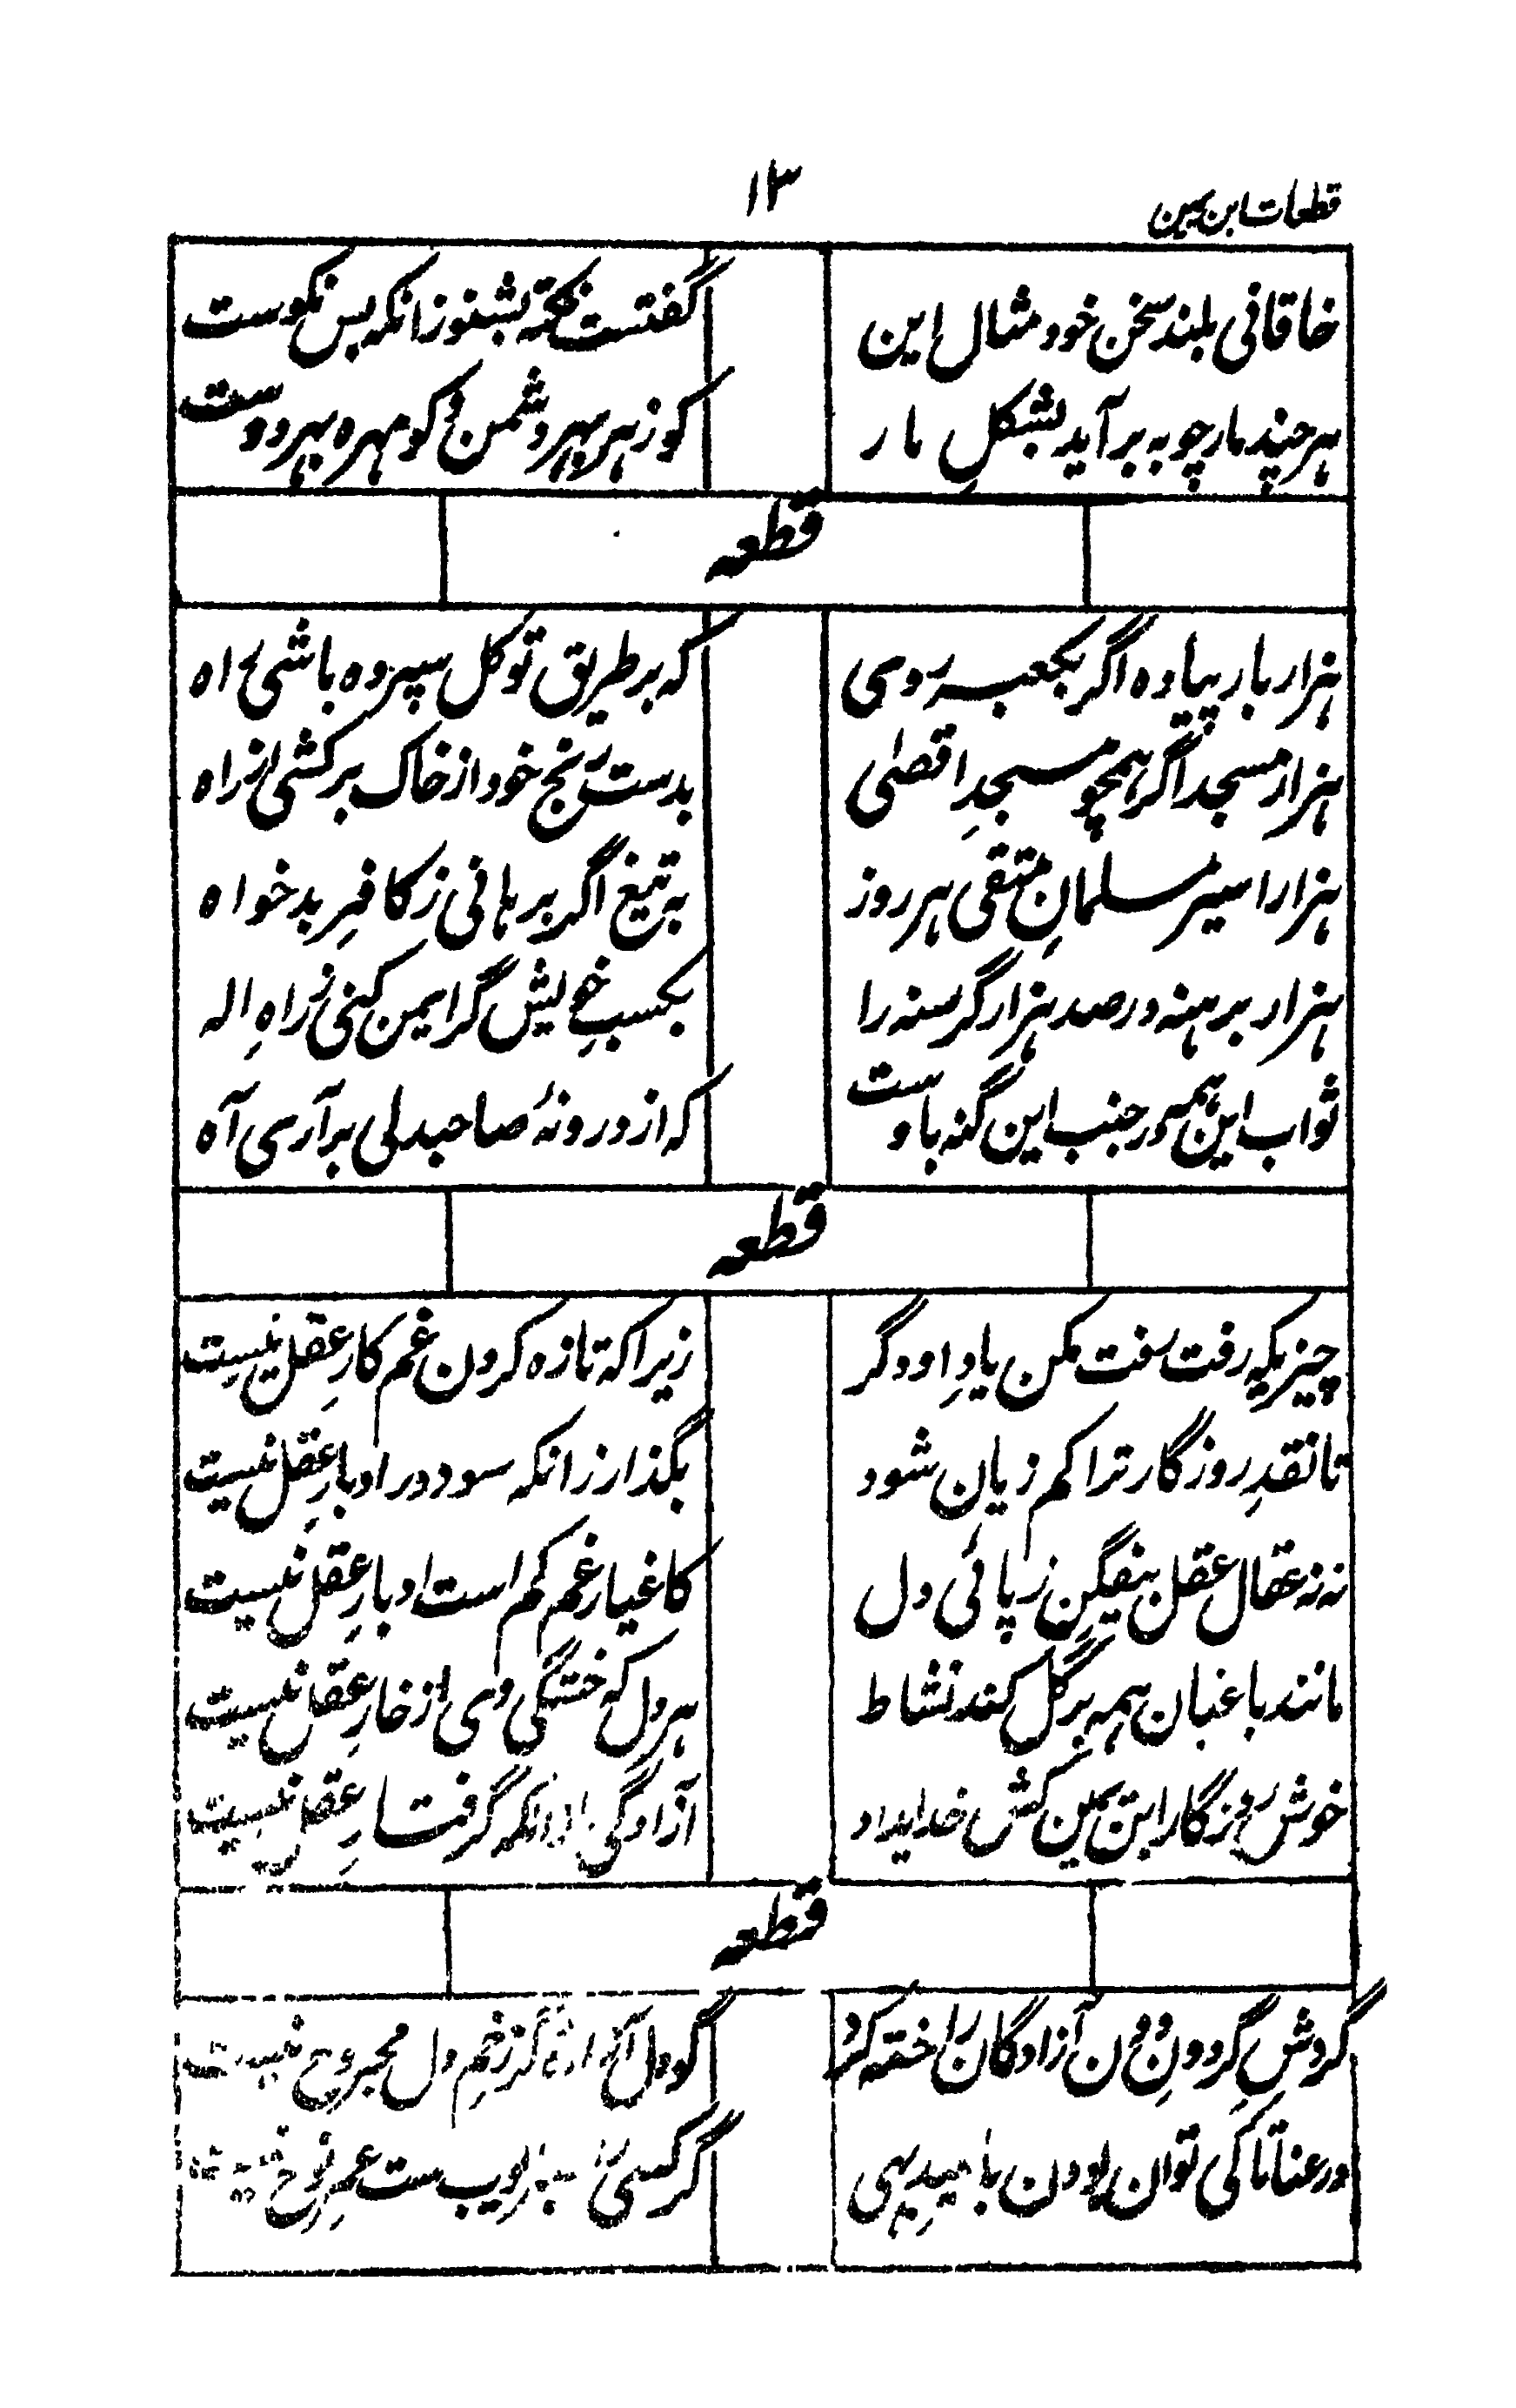 قطعات ابن یمین
۱۳
خاقانی بلند سخن خود مثال این گفتست نکته بشنو زانکه بس نکوست
هرچند مارچوبه برآید بشکلِ مار کو زهر بهر دشمن و کو مهره بهر دوست
قطعه
هزار بار پیاده اگر بکعبه روی که بر طریق توکل سپرده باشی راه
هزار مسجد اگر همچو مسجدِ اقصٰی بدست رنج خود از خاک برکشی از راه
هزار اسیر مسلمانِ متقی هر روز به تیغ اگر برهانی ز کافرِ بدخواه
هزار برهنه در صد هزار گرسنه را بکسبِ خویش گر ایمن کنی ز راهِ اله
ثواب این همه در جنب این گنه باد ست که از درونهٔ صاحبدلی برآری آه
قطعه
چیزیکه رفت رفت مکن یادِ او دگر زیرا که تازه کردن غم کارِ عقل نیست
تا نقدِ روزگار ترا کم زیان شود بگذار زانکه سود در ادبارِ عقل نیست
نه نه عقال عقل بیفگن ز پائی دل کاغیار غم کم است او بارِ عقل نیست
مانند باغبان همه بر گل کند نشاط هر دل که خستگی وی از خارِ عقل نیست
خوش روزگار ابن یمین کش خدا بداد آزادگی از انکه گرفتارِ عقل نیست
قطعه
گردشِ گردونِ دون آزادگان را خسته کرد کو دل آزاده کز زخمِ دل مجروح نیست
در عنا تا کی توان بودن بامیدِ بهی گر کسی صبر ایوب ست عمرِ نوح نیست